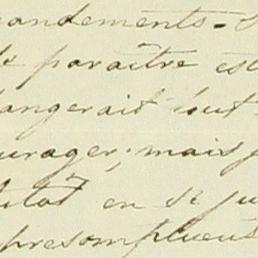 andements. S
de paraître est
angerait tout
urager; mais j
lutôt en se ju
présomptueus